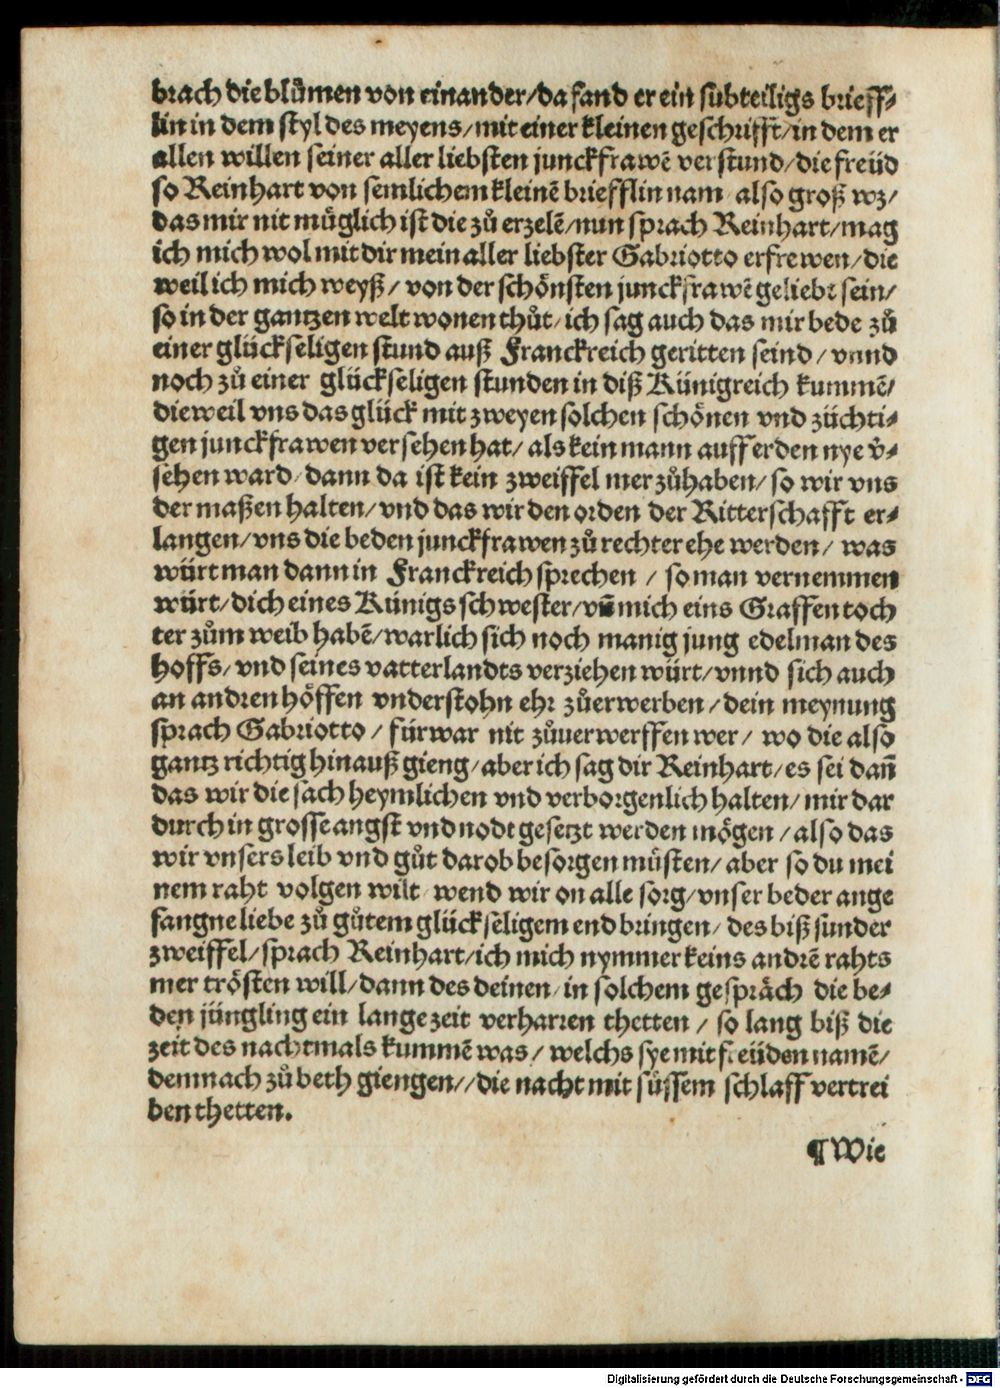 brach die blůmen von einander/da fand er ein subteiligs brieff⸗
lin in dem styl des meyens/mit einer kleinen geschrifft/in dem er
allen willen seiner aller liebsten junckfrawē verstund/die freüd
so Reinhart von semlichem kleinē briefflin nam/also groß wz/
das mir nit müglich ist die zů erzelē/nun sprach Reinhart/mag
ich mich wol mit dir mein aller liebster Gabriotto erfrewen/die
weil ich mich weyß/von der schönsten junckfrawē geliebt sein/
so in der gantzen welt wonen thůt/ich sag auch das mir bede zů
einer glückseligen stund auß Franckreich geritten seind/vnnd
noch zů einer glückseligen stunden in diß Künigreich kummē/
dieweil vns das glück mit zweyen solchen schönen vnd züchti⸗
gen junckfrawen versehen hat/als kein mann auff erden nye v̄⸗
sehen ward/dann da ist kein zweiffel mer zůhaben/so wir vns
der maßen halten/vnd das wir den orden der Ritterschafft er⸗
langen/vns die beden junckfrawen zů rechter ehe werden/was
würt man dann in Franckreich sprechen/so man vernemmen
würt/dich eines Künigs schwester/vn̄ mich eins Graffen toch
ter zům weib habē/warlich sich noch manig jung edelman des
hoffs/vnd seines vatterlandts verziehen würt/vnnd sich auch
an andren höffen vnderstohn ehr zůerwerben/dein meynung
sprach Gabriotto/fürwar nit zůuerwerffen wer/wo die also
gantz richtig hinauß gieng/aber ich sag dir Reinhart/es sei dan̄
das wir die sach heymlichen vnd verborgenlich halten/mir dar
durch in grosse angst vnd nodt gesetzt werden mögen/also das
wir vnsers leib vnd gůt darob besorgen müsten/aber so du mei
nem raht volgen wilt/wend wir on alle sorg/vnser beder ange
fangne liebe zů gůtem glückseligem end bringen/des biß sunder
zweiffel/sprach Reinhart/ich mich nymmer keins andrē rahts
mer trösten will/dann des deinen/in solchem gespräch die be⸗
den jüngling ein lange zeit verharren thetten/so lang biß die
zeit des nachtmals kummē was/welchs sye mit freüden namē/
demnach zů beth giengen//die nacht mit süssem schlaff vertrei
ben thetten.
¶ Wie
Digitalisierung gefördert durch die Deutsche Forschungsgemeinschaft - DFG